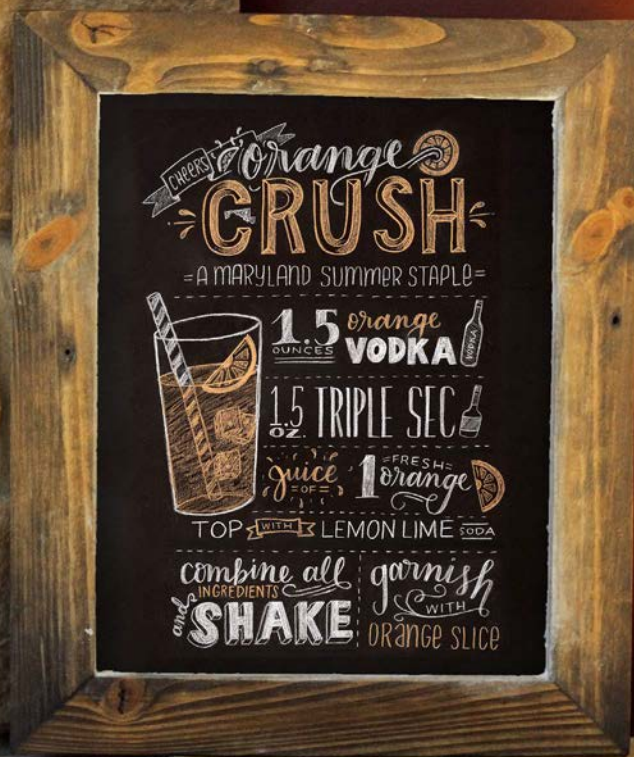 CHEERS
orange
CRUSH
=A MARYLAND SUMMER STAPLE=
1.5 OUNCES orange VODKA
VODKA
1.5 OZ. TRIPLE SEC
juice =OF= 1 =FRESH= orange
TOP WITH LEMON LIME SODA
combine all
INGREDIENTS
and SHAKE
garnish
WITH
ORANGE SLICE